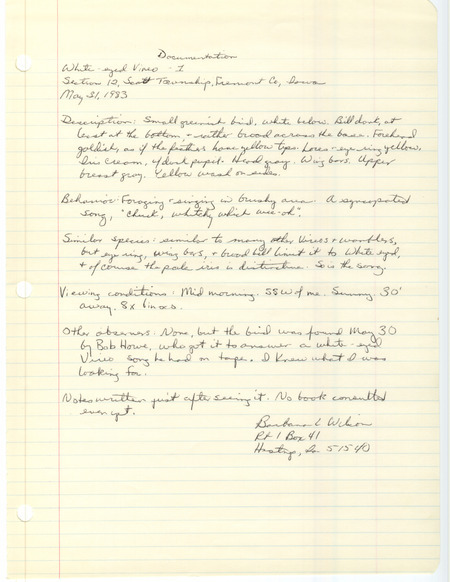 Documentation
White-eyed Vireo - 1
Section 12, Scott Township, Fremont Co, Iowa
May 31, 1983
Description: Small greenish bird, white below. Bill dark, at
least at the bottom, + rather broad across the base. Forehead
goldish, as if the feathers have yellow tips. Lores + eye ring yellow.
Iris cream, w/ dark pupil. Head gray. Wing bars. Upper
breast gray. Yellow wash on sides.
Behavior: Foraging + singing in brushy area. A syncopated
song, "chuck, whitchy which wee-oh".
Similar species: similar to many other vireos + warblers,
but eye ring, wing bars, + broad bill limit it to White-eyed,
+ of course the pale iris is distinctive. So is the song.
Viewing conditions: Mid morning. SSW of me. Sunny. 30'
away. 8x binocs.
Other observers: None, but the bird was found May 30
by Bob Howe, who got it to answer a white-eyed
Vireo song he had on tape. I knew what I was
looking for.
Notes written just after seeing it. No book consulted
even yet.
Barbara L Wilson
Rt 1 Box 41
Hastings, Ia 51540